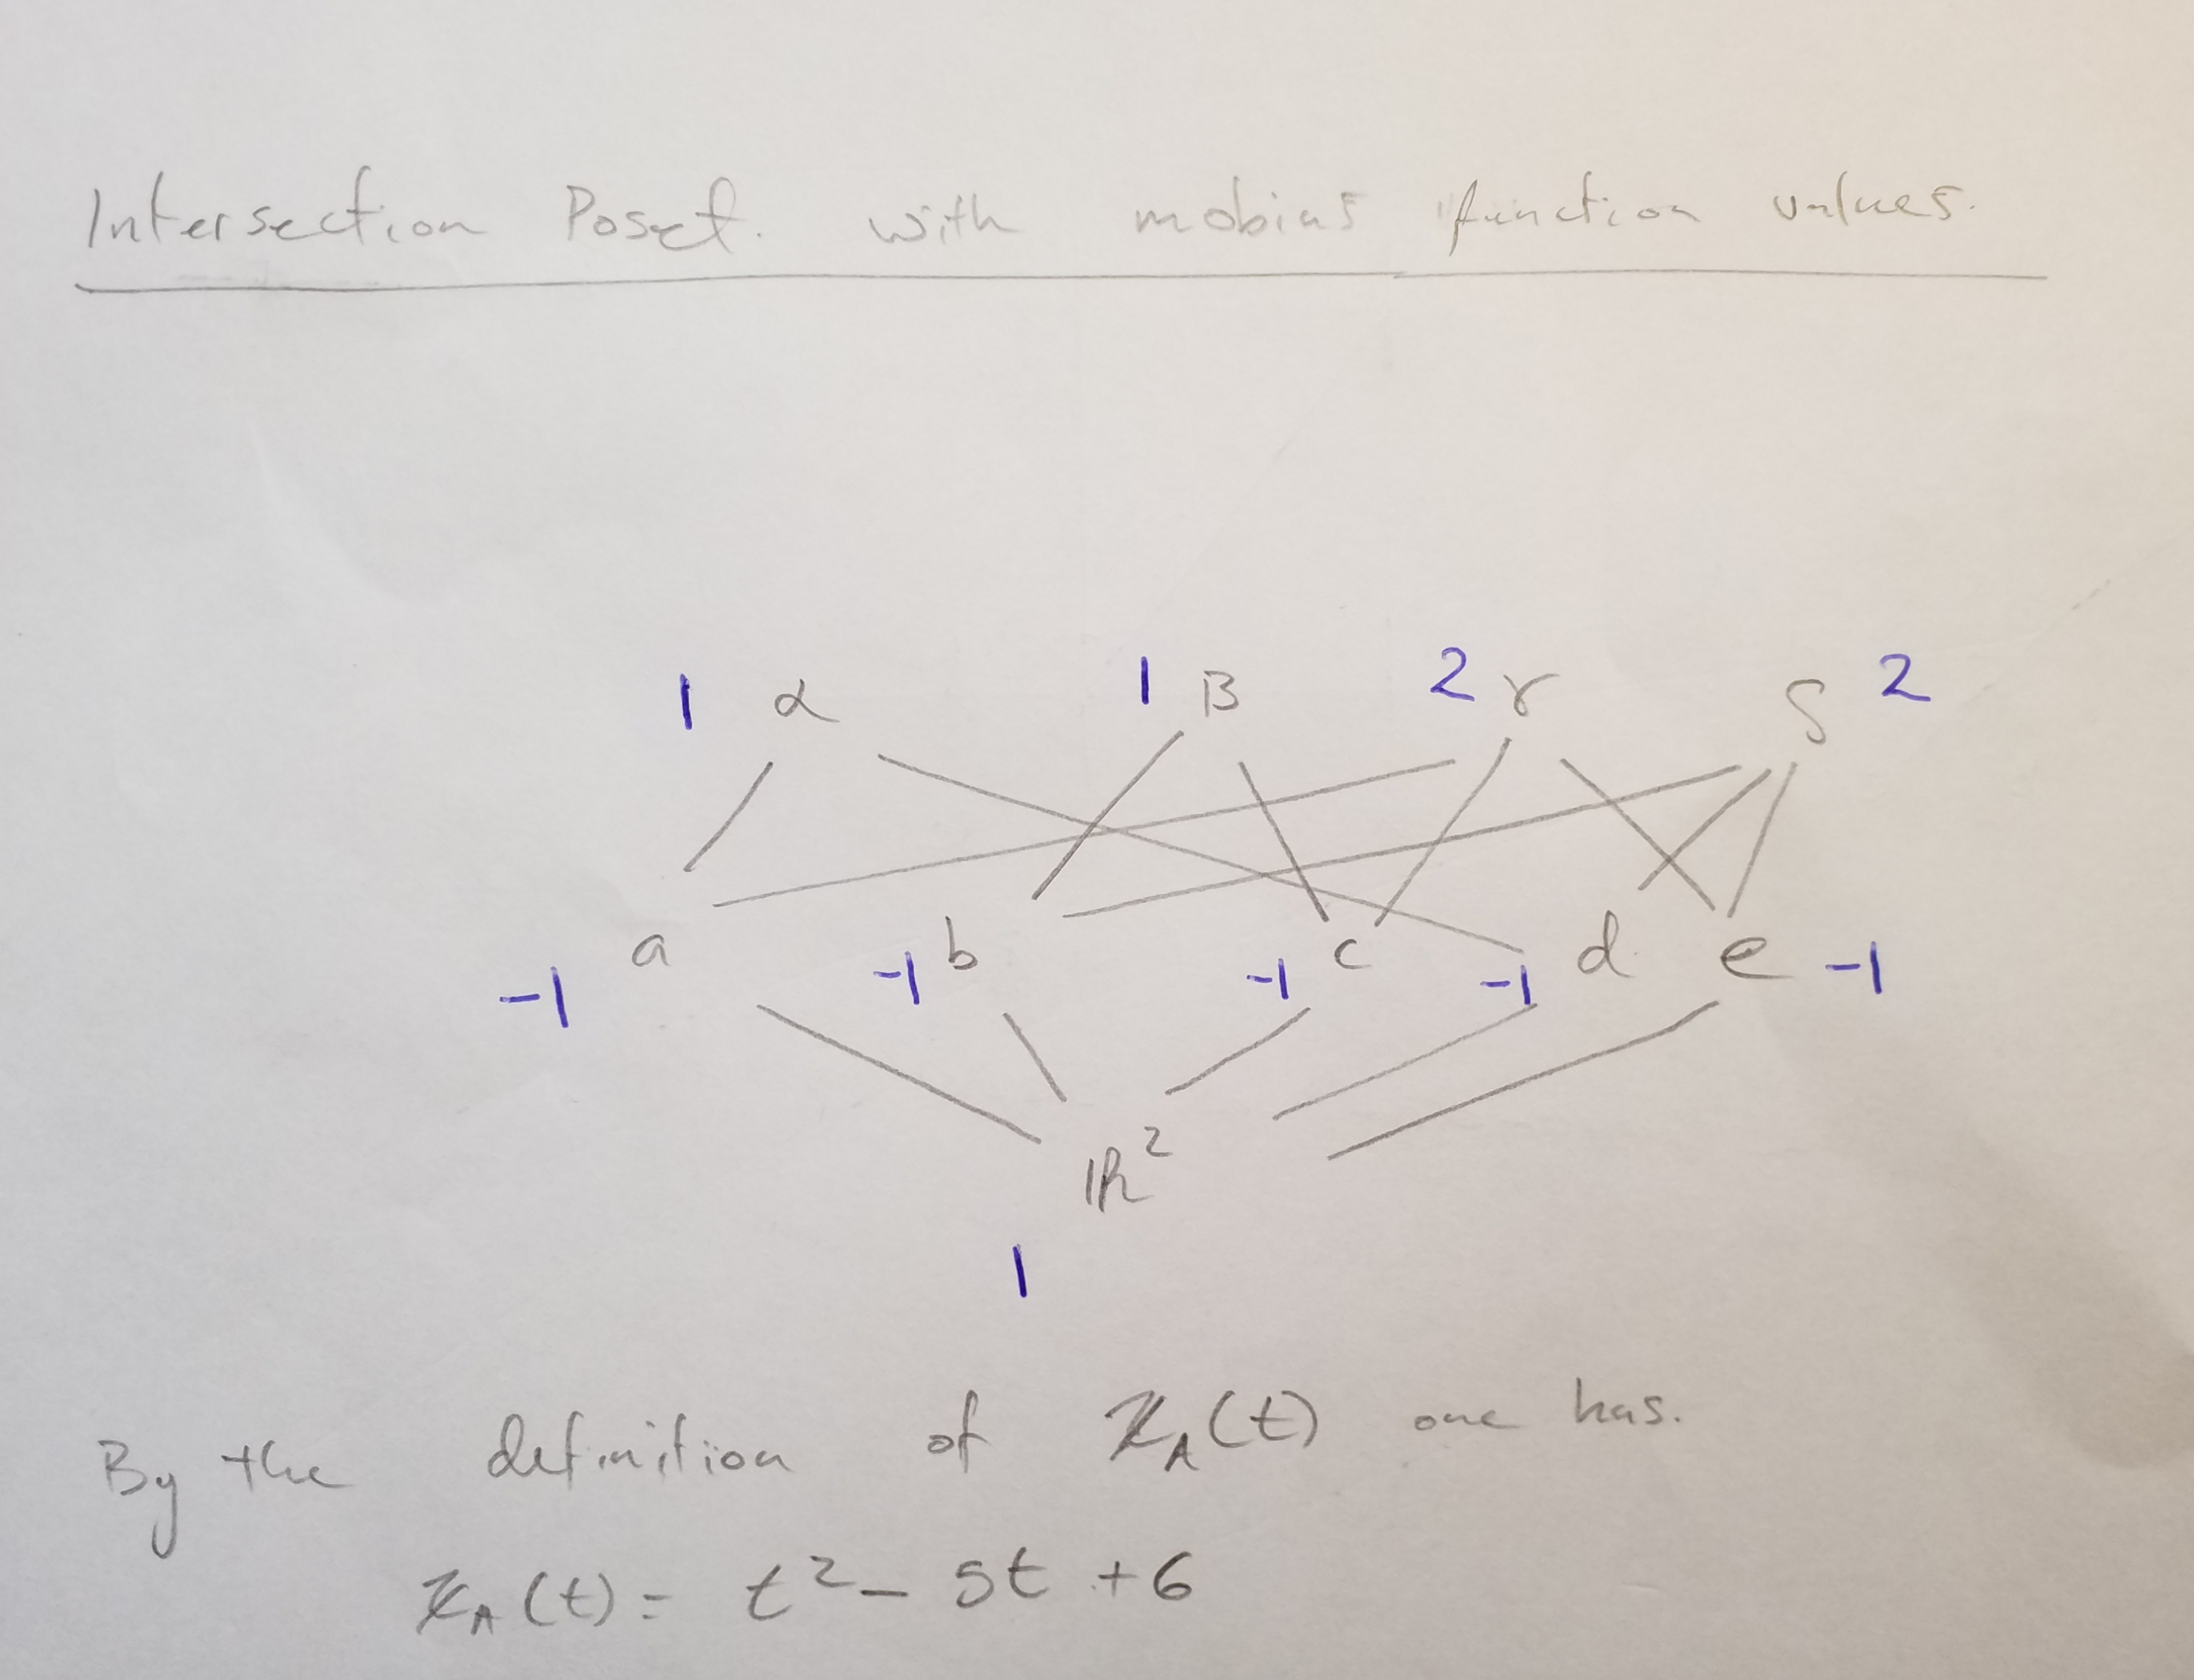 Intersection Poset. with mobius function values.
1 α 1 B 2 γ δ 2
a b c d e
-1 -1 -1 -1 -1
ℝ²
1
By the definition of χ_A(t) one has.
χ_A(t) = t² - 5t + 6